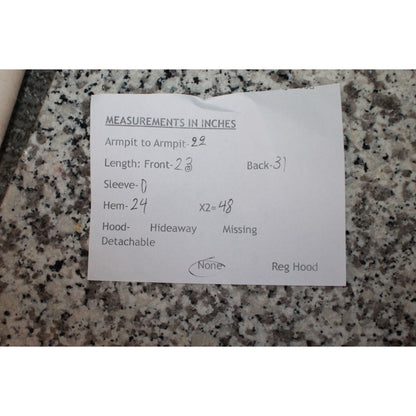 MEASUREMENTS IN INCHES
Armpit to Armpit- 22
Length: Front- 23 Back- 31
Sleeve- 0
Hem- 24 X2= 48
Hood- Hideaway Missing
Detachable
None Reg Hood